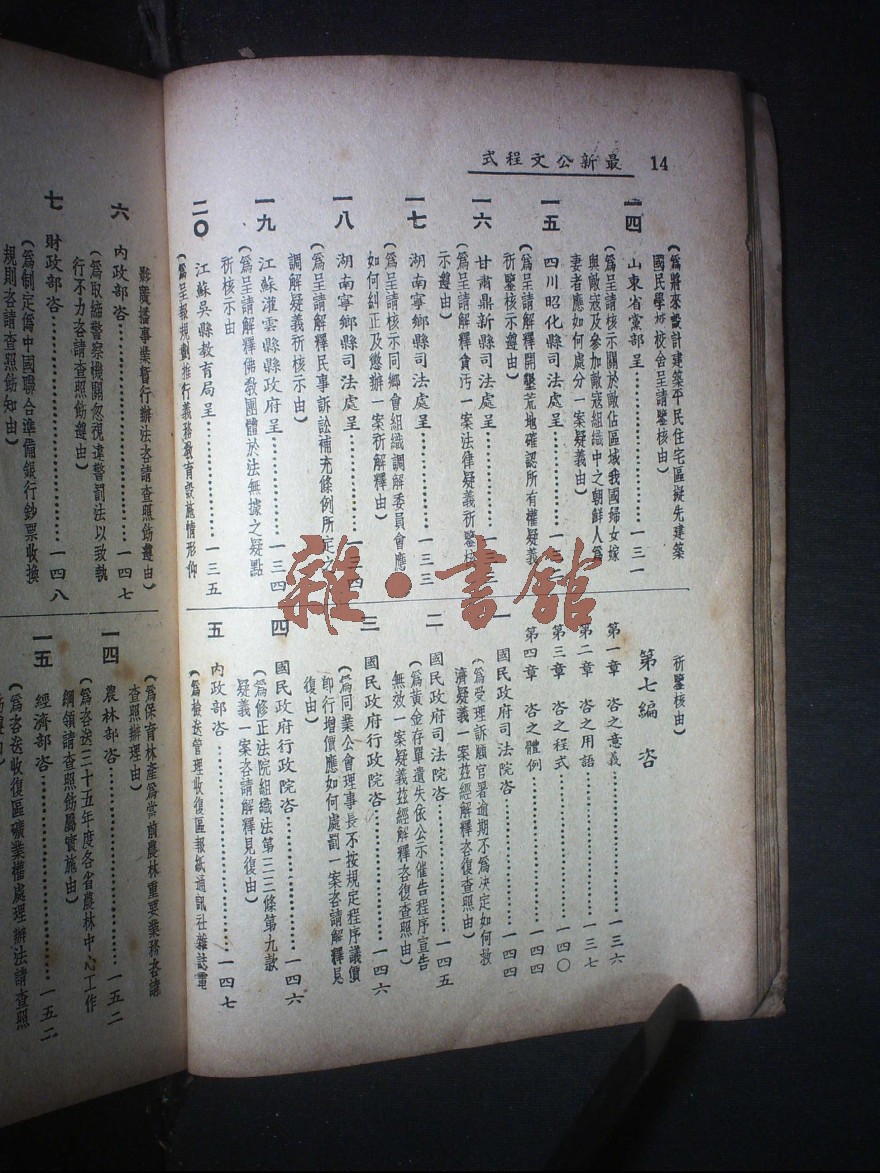 14 最新公文程式
(爲將來設計建築平民住宅區擬先建築
國民學校校舍呈請鑒核由)
一四 山東省黨部呈…………一三一
(爲呈請核示關於敵佔區域我國婦女嫁
與敵寇及參加敵寇組織中之朝鮮人爲
妻者應如何處分一案疑義由)
一五 四川昭化縣司法處呈…………一三
(爲呈請解釋開墾荒地確認所有權疑義
祈鑒核示遵由)
一六 甘肅鼎新縣司法處呈…………一三
(爲呈請解釋貪污一案法律疑義祈鑒核
示遵由)
一七 湖南寧鄉縣司法處呈…………一三三
(爲呈請核示同鄉會組織調解委員會應
如何糾正及懲辦一案祈解釋由)
一八 湖南寧鄉縣司法處呈…………一三四
(爲呈請解釋民事訴訟補充條例所定之
調解疑義祈核示由)
一九 江蘇灌雲縣縣政府呈…………一三四
(爲呈請解釋佛教團體於法無據之疑點
祈核示由
二〇 江蘇吳縣教育局呈…………一三五
(爲呈報規劃推行義務教育設施情形仰
祈鑒核由)
第七編 咨
第一章 咨之意義…………一三六
第二章 咨之用語…………一三七
第三章 咨之程式…………一四〇
第四章 咨之體例…………一四四
一 國民政府司法院咨…………一四四
(爲受理訴願官署逾期不爲決定如何救
濟疑義一案茲經解釋咨復查照由)
二 國民政府司法院咨…………一四五
(爲黃金存單遺失依公示催告程序宣告
無效一案疑義茲經解釋咨復查照由)
三 國民政府行政院咨…………一四六
(爲同業公會理事長不按規定程序議價
即行增價應如何處罰一案咨請解釋見
復由)
四 國民政府行政院咨…………一四六
(爲修正法院組織法第三三條第九款
疑義一案咨請解釋見復由)
五 內政部咨…………一四七
(爲檢送管理收復區報紙通訊社雜誌電
影廣播事業暫行辦法咨請查照飭遵由)
六 內政部咨…………一四七
(爲取締警察機關忽視違警罰法以致執
行不力咨請查照飭遵由)
七 財政部咨…………一四八
(爲制定僞中國聯合準備銀行鈔票收換
規則咨請查照飭知由)
(爲保育林產爲當前農林重要業務咨請
查照辦理由)
一四 農林部咨…………一五二
(爲咨送三十五年度各省農林中心工作
綱領請查照飭屬實施由)
一五 經濟部咨…………一五二
(爲咨送收復區礦業權處理辦法請查照
雜·書館